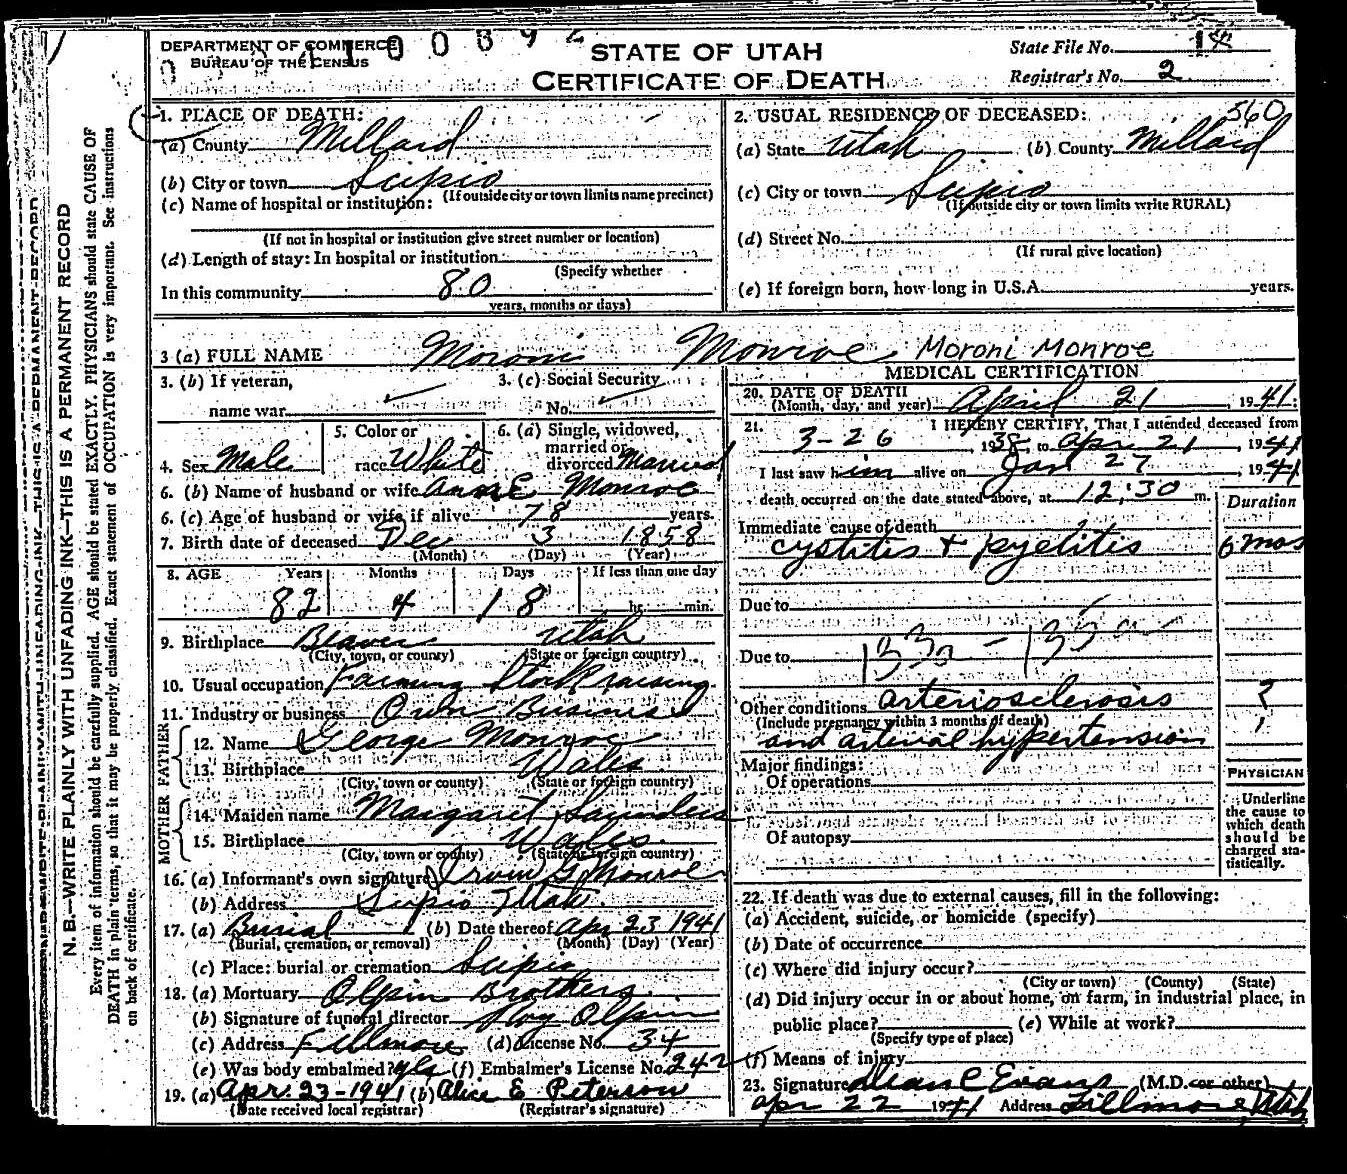 DEPARTMENT OF COMMERCE
BUREAU OF THE CENSUS
STATE OF UTAH
CERTIFICATE OF DEATH
State File No. 14
Registrar's No. 2
N. B.—WRITE PLAINLY WITH UNFADING INK—THIS IS A PERMANENT RECORD
Every item of information should be carefully supplied. AGE should be stated EXACTLY. PHYSICIANS should state CAUSE OF
DEATH in plain terms, so that it may be properly classified. Exact statement of OCCUPATION is very important. See instructions
on back of certificate.
1. PLACE OF DEATH:
(a) County Millard
(b) City or town Scipio
(If outside city or town limits name precinct)
(c) Name of hospital or institution:
(If not in hospital or institution give street number or location)
(d) Length of stay: In hospital or institution
(Specify whether
In this community 80
years, months or days)
560
2. USUAL RESIDENCE OF DECEASED:
(a) State Utah (b) County Millard
(c) City or town Scipio
(If outside city or town limits write RURAL)
(d) Street No.
(If rural give location)
(e) If foreign born, how long in U.S.A. years.
3 (a) FULL NAME Moroni Monroe Moroni Monroe
3. (b) If veteran,
name war
3. (c) Social Security
No.
4. Sex Male
5. Color or
race White
6. (a) Single, widowed,
married or
divorced Married
6. (b) Name of husband or wife Ann E Monroe
6. (c) Age of husband or wife if alive 78 years.
7. Birth date of deceased Dec 3 1858
(Month) (Day) (Year)
8. AGE Years Months Days If less than one day
82 4 18 hr. min.
9. Birthplace Beaver Utah
(City, town, or county) (State or foreign country)
10. Usual occupation Farming Stock raising
11. Industry or business Own Business
FATHER
12. Name George Monroe
13. Birthplace Wales
(City, town or county) (State or foreign country)
MOTHER
14. Maiden name Margaret Saunders
15. Birthplace Wales
(City, town or county) (State or foreign country)
16. (a) Informant's own signature Irvin G Monroe
(b) Address Scipio Utah
17. (a) Burial (b) Date thereof Apr 23 1941
(Burial, cremation, or removal) (Month) (Day) (Year)
(c) Place: burial or cremation Scipio
18. (a) Mortuary Olpin Brothers
(b) Signature of funeral director Roy Olpin
(c) Address Fillmore (d) License No. 34
(e) Was body embalmed? yes (f) Embalmer's License No. 242
19. (a) Apr. 23-1941 (b) Alice E Peterson
(Date received local registrar) (Registrar's signature)
MEDICAL CERTIFICATION
20. DATE OF DEATH
(Month, day, and year) April 21, 1941
21. I HEREBY CERTIFY, That I attended deceased from
3-26, 1938, to Apr 21, 1941
I last saw him alive on Jan 27, 1941
death occurred on the date stated above, at 12:30 m.
Duration
Immediate cause of death
cystitis + pyelitis 6 mos
Due to
Due to
Other conditions arteriosclerosis ?
(Include pregnancy within 3 months of death)
and arterial hypertension
Major findings:
Of operations
Of autopsy
PHYSICIAN
Underline
the cause to
which death
should be
charged sta-
tistically.
22. If death was due to external causes, fill in the following:
(a) Accident, suicide, or homicide (specify)
(b) Date of occurrence
(c) Where did injury occur?
(City or town) (County) (State)
(d) Did injury occur in or about home, on farm, in industrial place, in
public place? (e) While at work?
(Specify type of place)
(f) Means of injury
23. Signature Dean C Evans (M.D. or other)
Apr 22 1941 Address Fillmore, Utah